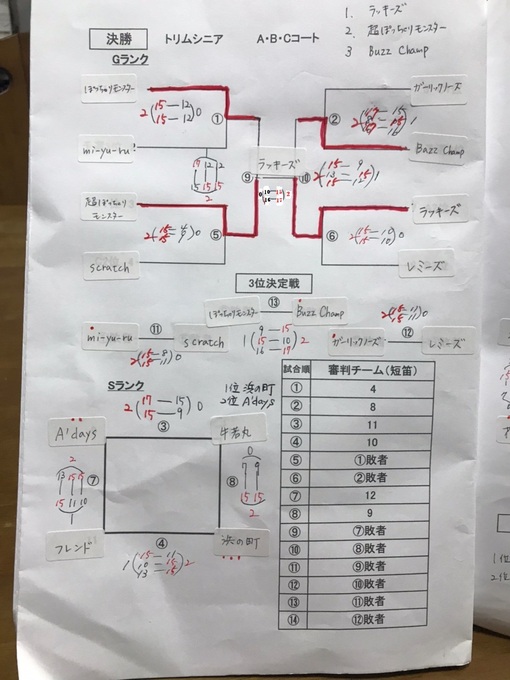 決勝 トリムシニア A・B・Cコート
1. ラッキーズ
2. 超ぽっちゃりモンスター
3 Buzz Champ
Gランク
ぽっちゃりモンスター
2 (15－12 15－12) 0
①
mi-yu-ru
ガーリックノーズ
②
Bazz Champ
17 12 2
15 15 15
2
ラッキーズ
⑨
⑩
2 (15－9 13－15 15－12) 1
超ぽっちゃり
モンスター
⑤
scratch
ラッキーズ
⑥
2 (15－10 15－10) 0
レミーズ
3位決定戦
⑬
ぽっちゃりモンスター
Buzz Champ
1 (9－15 15－10 16－17) 2
⑪
mi-yu-ru
scratch
⑫
ガーリックノーズ
レミーズ
Sランク
1位 浜の町
2位 A'days
2 (17－15 15－9) 0
③
A'days
牛若丸
2
13 15 15
⑦
15 11 10
1
0
7 9
⑧
15 15
2
フレンド
浜の町
④
1 (15－11 10－15 13－15) 2
試合順 審判チーム(短笛)
① 4
② 8
③ 11
④ 10
⑤ ①敗者
⑥ ②敗者
⑦ 12
⑧ 9
⑨ ⑦敗者
⑩ ⑧敗者
⑪ ⑨敗者
⑫ ⑩敗者
⑬ ⑪敗者
⑭ ⑫敗者
1位
2位